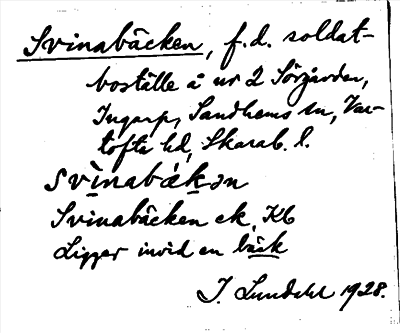 Svinabäcken, f.d. soldat-
boställe å nr 2 Sörgården,
Ingarp, Sandhems sn, Var-
tofta hd, Skarab. l.
svìnabákən
Svinabäcken ek, Kb
Ligger invid en bäck
I. Lundahl 1928.